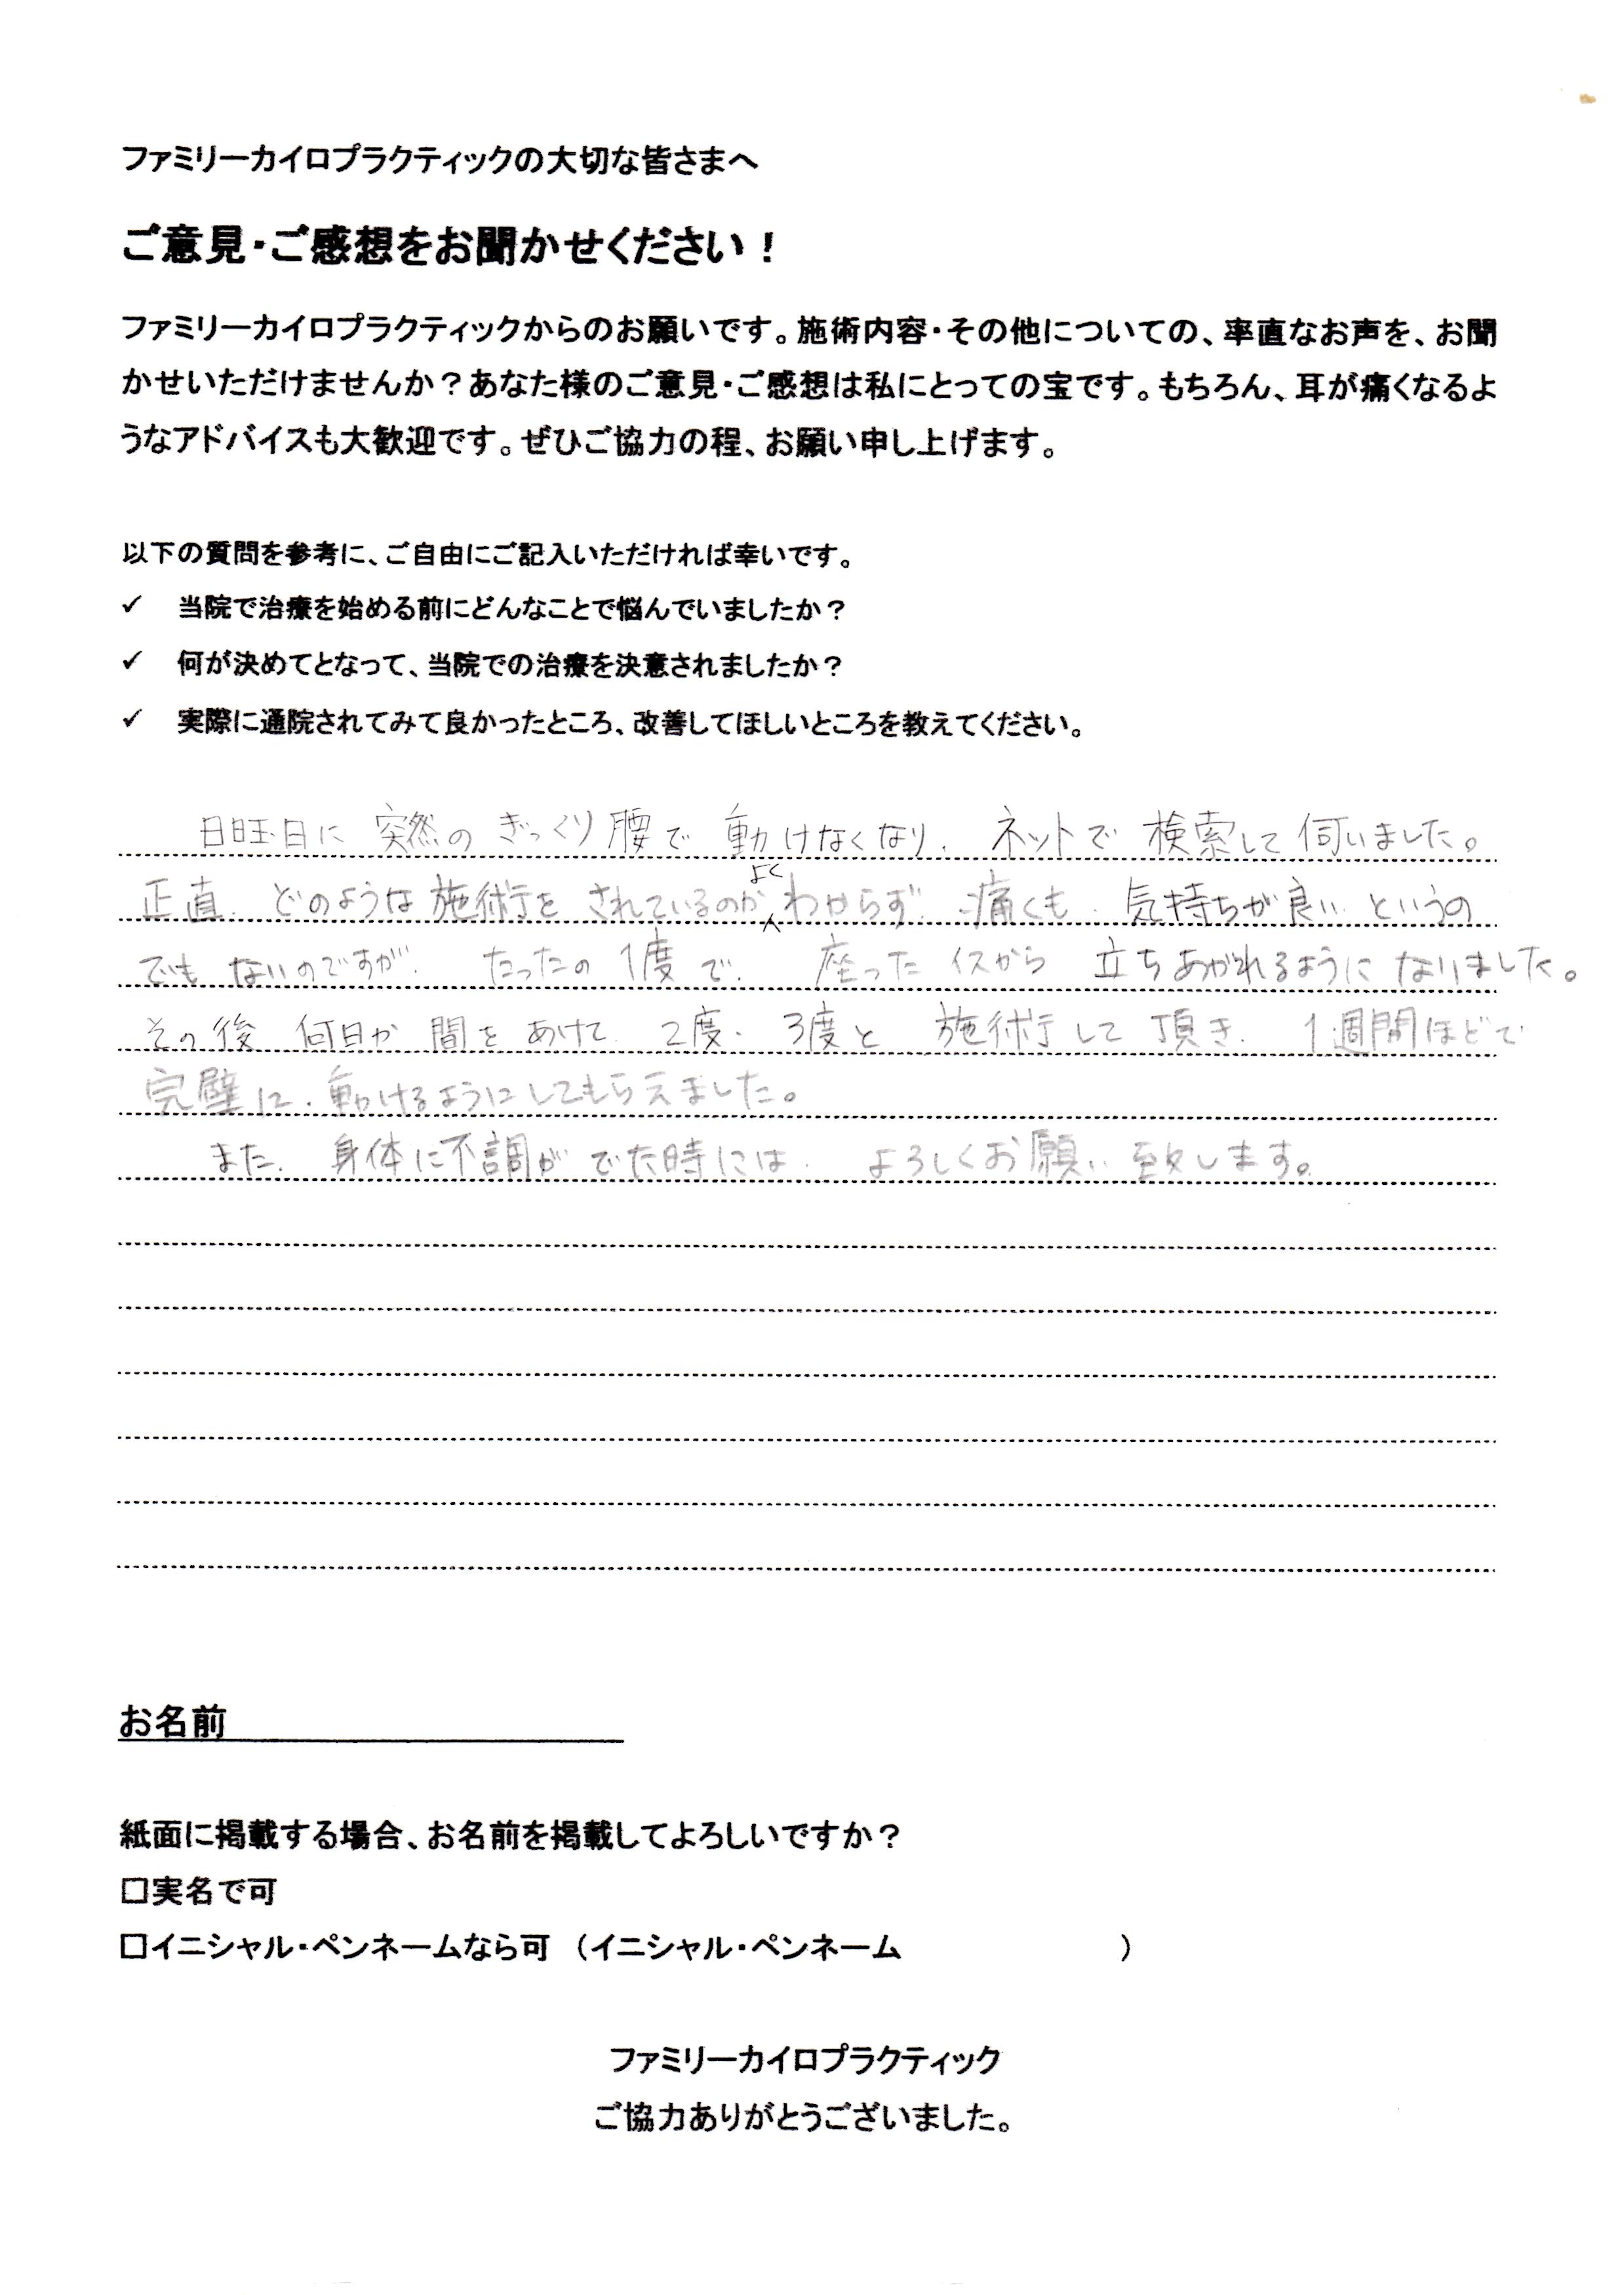 ファミリーカイロプラクティックの大切な皆さまへ
ご意見・ご感想をお聞かせください！
ファミリーカイロプラクティックからのお願いです。施術内容・その他についての、率直なお声を、お聞
かせいただけませんか？あなた様のご意見・ご感想は私にとっての宝です。もちろん、耳が痛くなるよ
うなアドバイスも大歓迎です。ぜひご協力の程、お願い申し上げます。
以下の質問を参考に、ご自由にご記入いただければ幸いです。
✓ 当院で治療を始める前にどんなことで悩んでいましたか？
✓ 何が決めてとなって、当院での治療を決意されましたか？
✓ 実際に通院されてみて良かったところ、改善してほしいところを教えてください。
日曜日に 突然の ぎっくり腰で 動けなくなり、ネットで 検索して 伺いました。
正直、どのような施術を されているのかよくわからず、痛くも、気持ちが良い というの
でも ないのですが、たったの 1度で、座った イスから 立ちあがれるように なりました。
その後 何日か 間を あけて、2度、3度と 施術して 頂き、1週間ほどで
完璧に、動けるようにしてもらえました。
また、身体に不調が でた時には、よろしくお願い 致します。
お名前
紙面に掲載する場合、お名前を掲載してよろしいですか？
□実名で可
□イニシャル・ペンネームなら可 （イニシャル・ペンネーム ）
ファミリーカイロプラクティック
ご協力ありがとうございました。